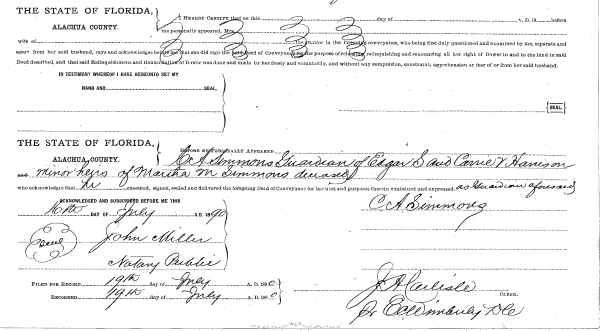 THE STATE OF FLORIDA,
ALACHUA COUNTY.
I HEREBY CERTIFY that on this day of A. D. 18 before
me personally appeared, Mrs.
wife of the grantor in the foregoing conveyance, who being first duly questioned and examined by me, separate and
apart from her said husband, says and acknowledges before me that she did sign the said Deed of Conveyance for the purpose of relinquishing and renouncing all her right of Dower in and to the land in said
Deed described, and that said Relinquishment and Renunciation of Dower was done and made by her freely and voluntarily, and without any compulsion, constraint, apprehension or fear of or from her said husband.
IN TESTIMONY WHEREOF I HAVE HEREUNTO SET MY
HAND AND SEAL.
SEAL.
THE STATE OF FLORIDA,
ALACHUA COUNTY.
BEFORE ME PERSONALLY APPEARED
C. A Simmons Guardian of Edgar S and Carrie V Harrison
and minor heirs of Martha M Simmons deceased
who acknowledge that he executed, signed, sealed and delivered the foregoing Deed of Conveyance for the uses and purposes therein contained and expressed, as Guardian aforesaid
ACKNOWLEDGED AND SUBSCRIBED BEFORE ME THIS
16th DAY OF July A. D. 1890
C A Simmons
Seal
John Miller
Notary Public
FILED FOR RECORD 19th day of July A. D. 1890
RECORDED 19th day of July A. D. 1890
J A Carlisle
CLERK.
Pr E C Wimberly D C